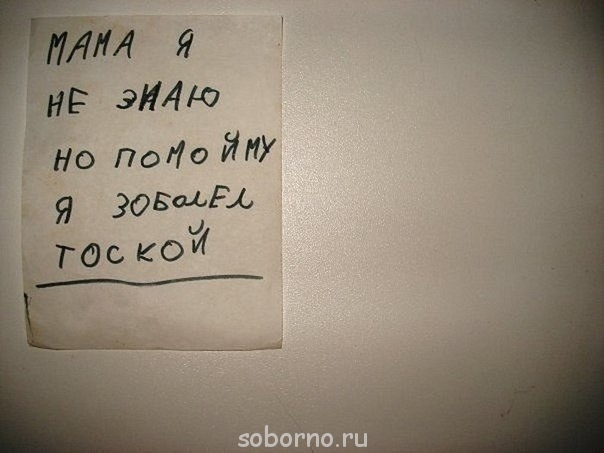 МАМА Я
НЕ ЗНАЮ
НО ПОМОЙМУ
Я ЗОБОЛЕЛ
ТОСКОЙ
soborno.ru